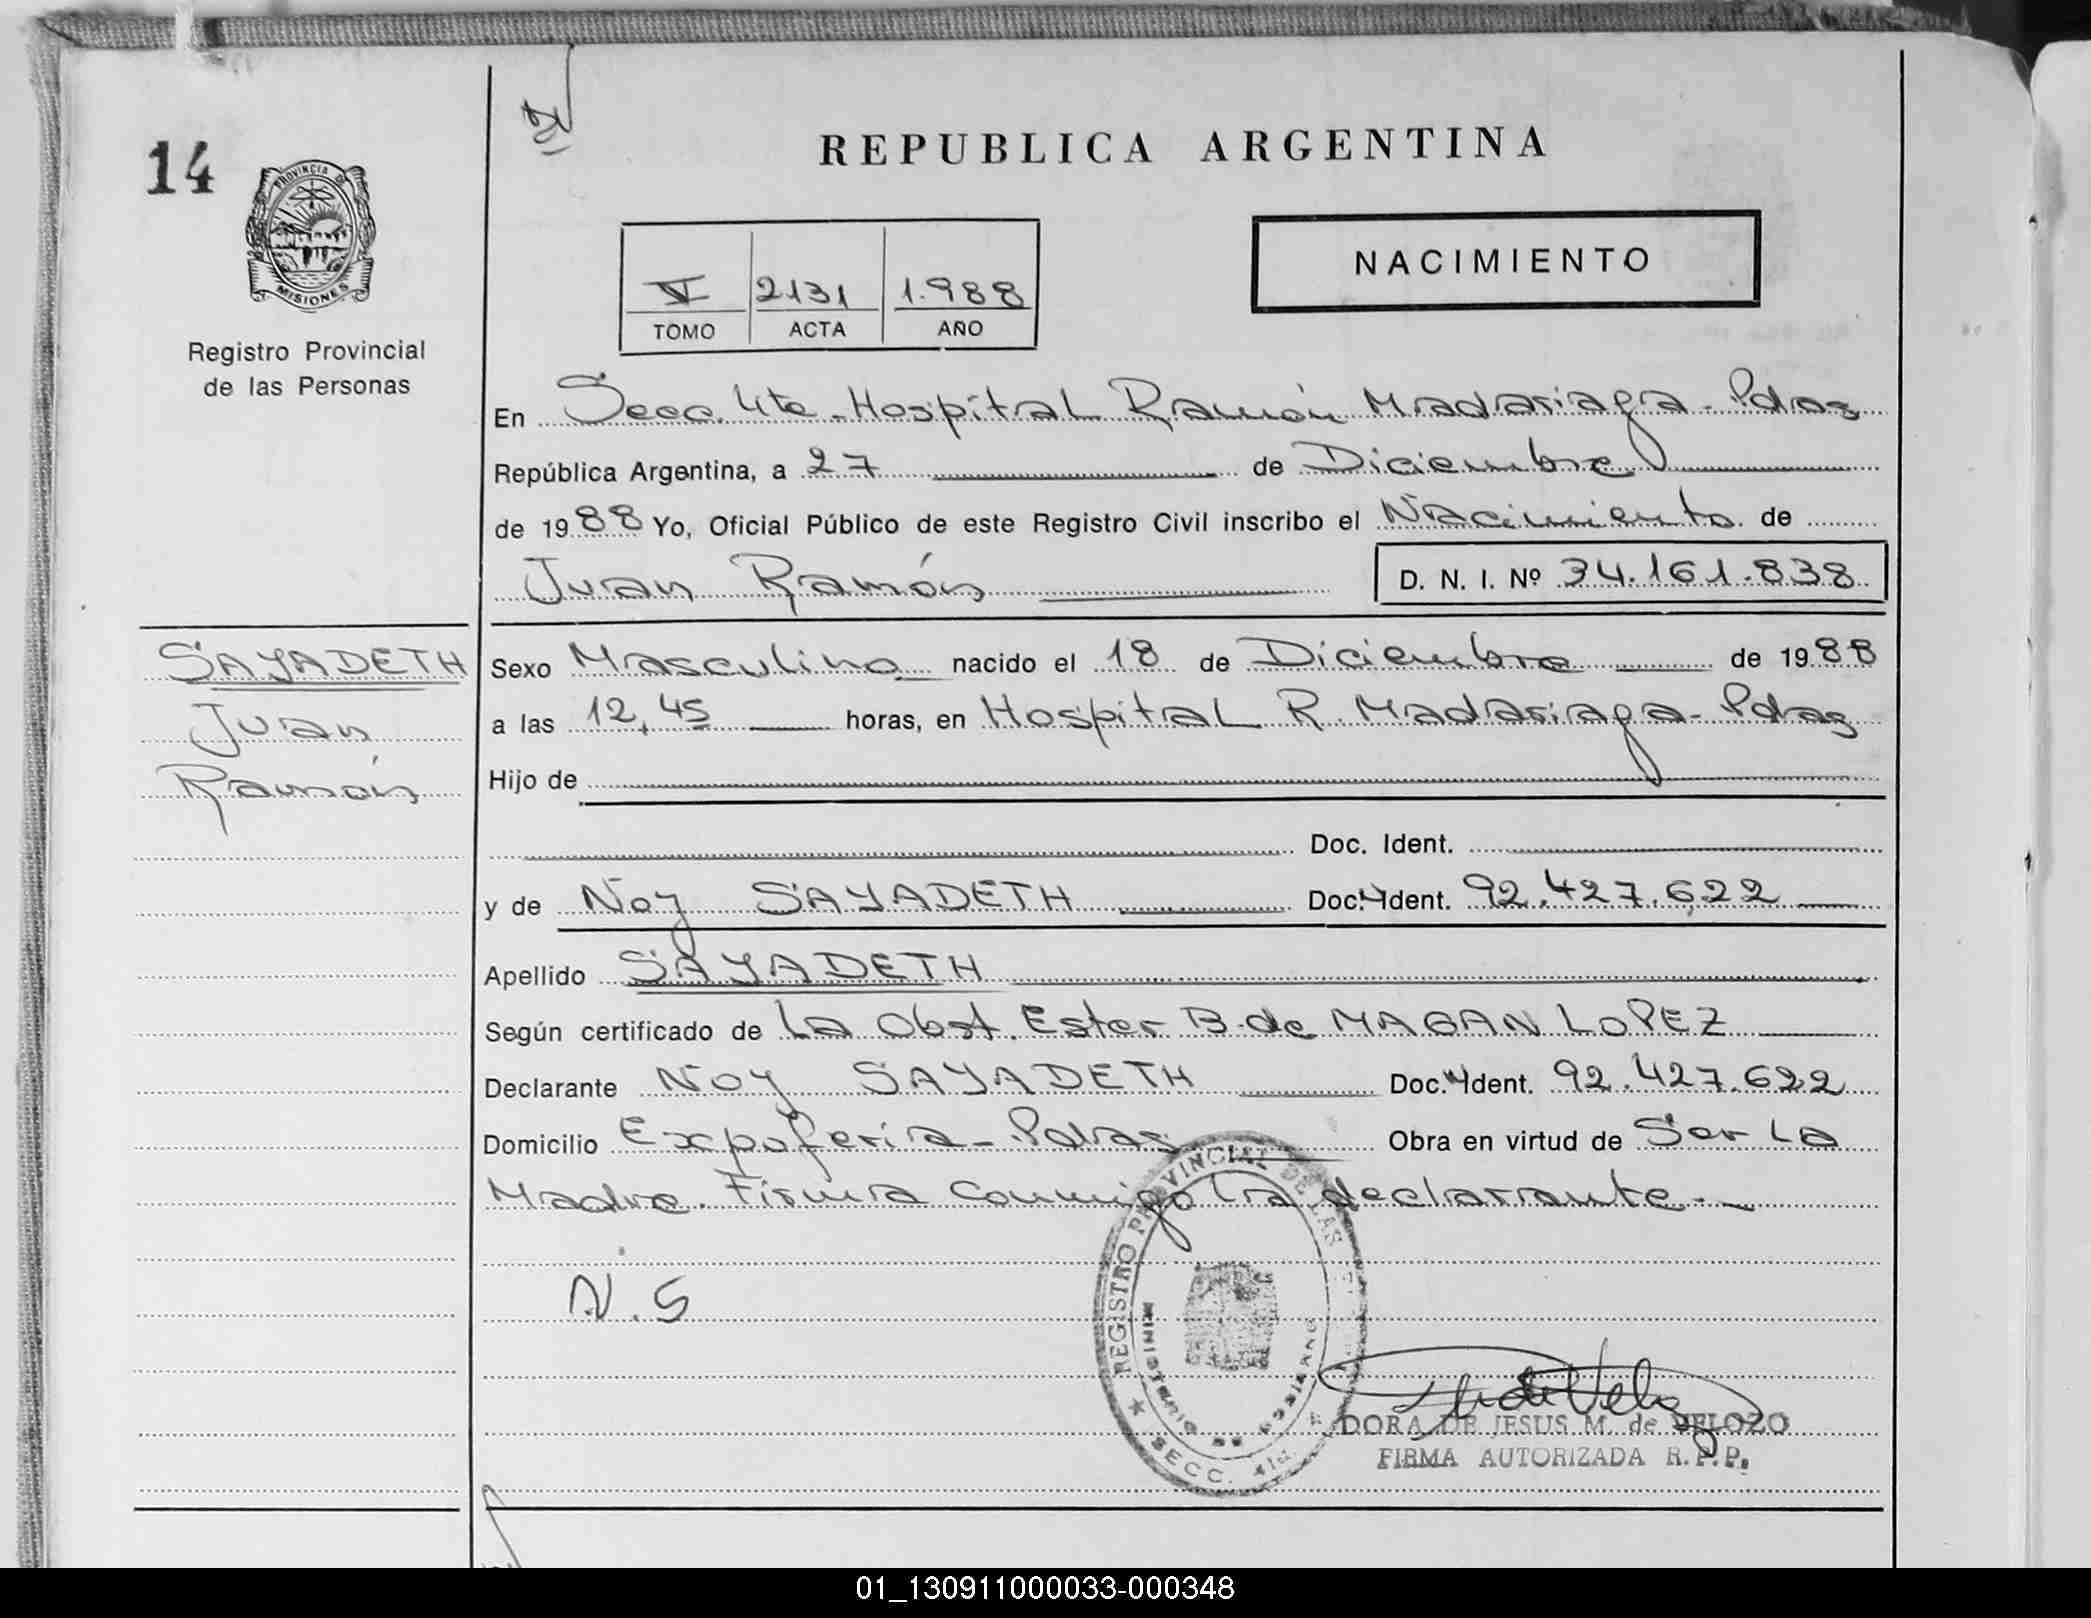 14
PROVINCIA DE
MISIONES
Registro Provincial
de las Personas
REPUBLICA ARGENTINA
V 2131 1.988
TOMO ACTA AÑO
NACIMIENTO
En Secc. 4ta. Hospital Ramón Madariaga - Pdas
República Argentina, a 27 de Diciembre
de 1988 Yo, Oficial Público de este Registro Civil inscribo el Nacimiento de
Juan Ramón D. N. I. Nº 34.161.838
SAYADETH
Juan
Ramón
Sexo Masculino nacido el 18 de Diciembre de 1988
a las 12,45 horas, en Hospital R. Madariaga - Pdas
Hijo de
Doc. Ident.
y de Noy SAYADETH Doc. Ident. 92.427.622
Apellido SAYADETH
Según certificado de La Obst. Ester B. de MAGAN LOPEZ
Declarante NOY SAYADETH Doc. Ident. 92.427.622
Domicilio Expoferia - Pdas Obra en virtud de Ser La
Madre. Firma conmigo la declarante. -
N.S
REGISTRO PROVINCIAL DE LAS
MINISTERIO DE GOBIERNO
SECC. 4ta.
DORA DE JESUS M. de VELOZO
FIRMA AUTORIZADA R.P.P.
01_130911000033-000348